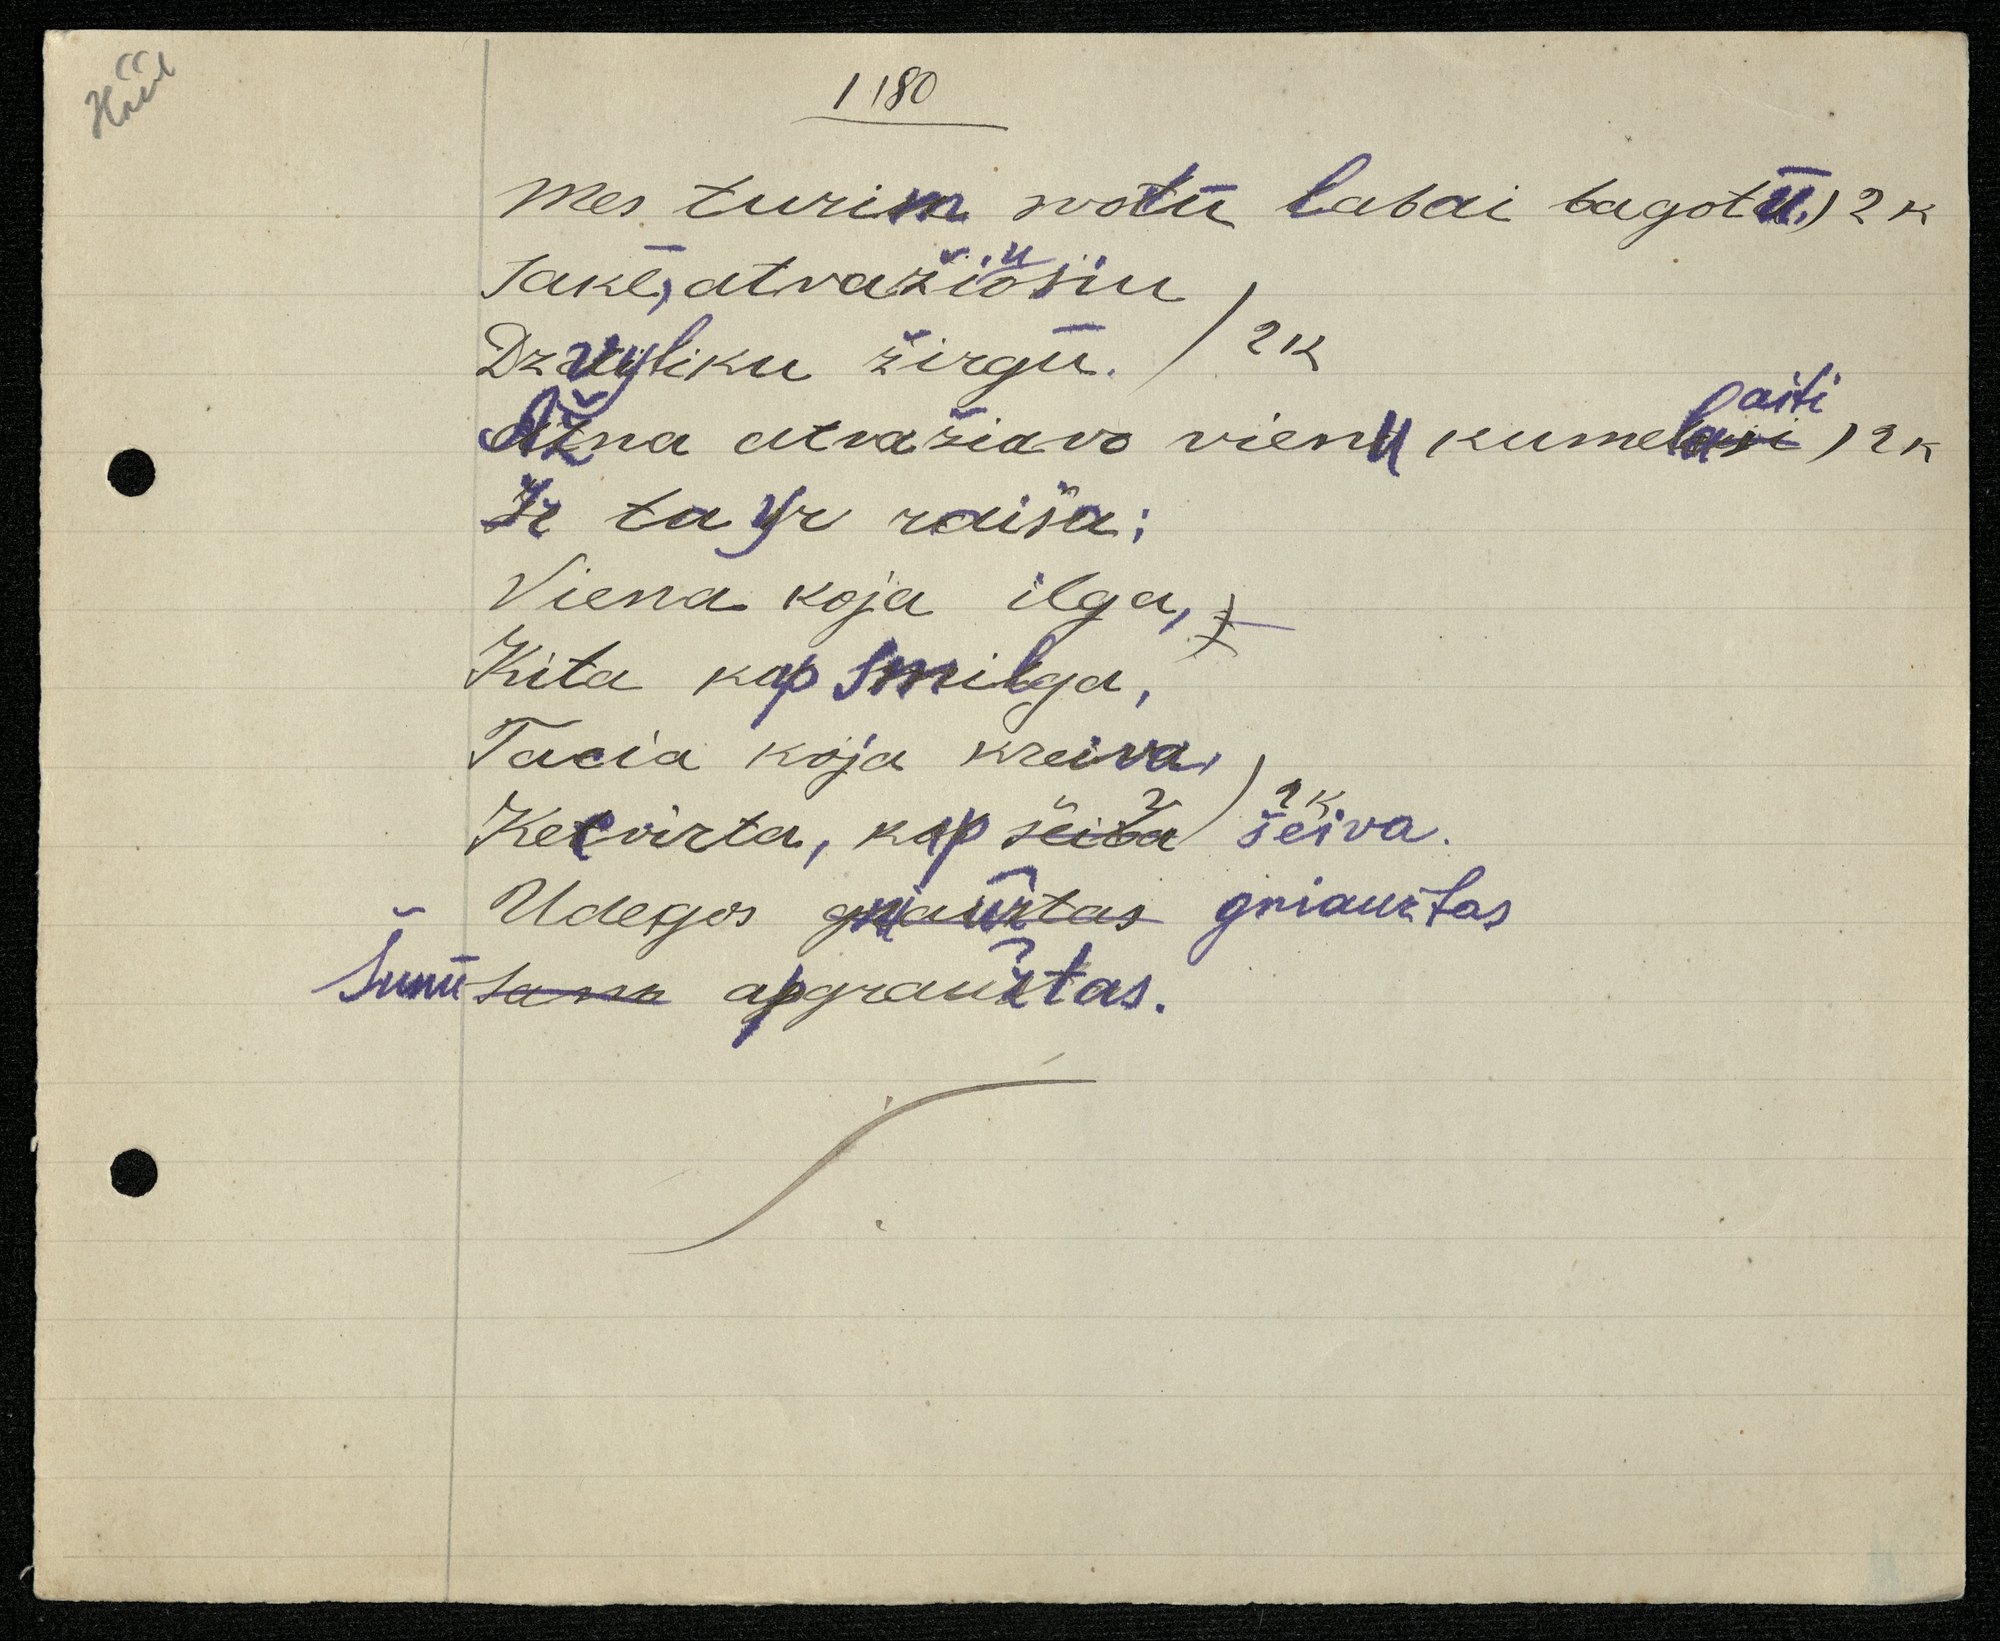 1180
Mes turim svotū labai bagotū.) 2 k
Sakē, atvažiusiu
Dzvyliku žirgū. ) 2 k
Ažna atvažiavo vienu kumelaiti ) 2 k
Ir ta yr raiša;
Viena koja ilga,
Kita kap smilga,
Tacia koja kreiva, ) 2 k
Kecvirta, kap šeiva šeiva.
Udegos gniaužtas gniaužtas
Šunū apgraužtas.